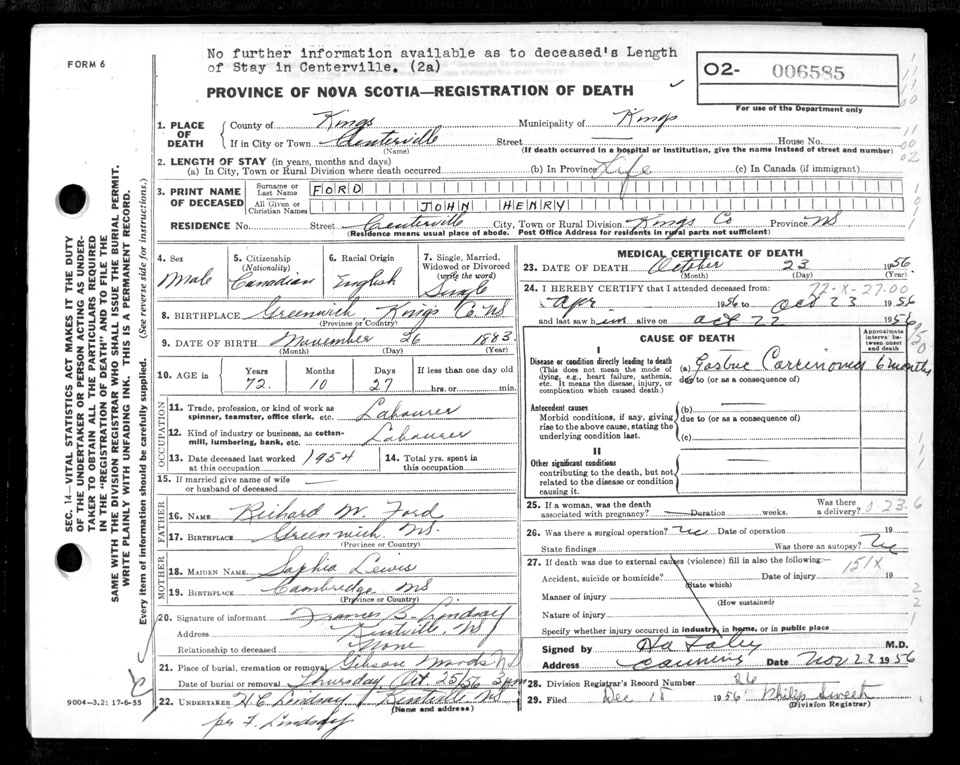 FORM 6
No further information available as to deceased's Length
of Stay in Centerville. (2a)
O2- 006585
For use of the Department only
PROVINCE OF NOVA SCOTIA—REGISTRATION OF DEATH
1. PLACE OF DEATH
County of Kings Municipality of Kings
If in City or Town Centerville Street — House No.
(Name) (If death occurred in a hospital or institution, give the name instead of street and number)
2. LENGTH OF STAY (in years, months and days)
(a) In City, Town or Rural Division where death occurred (b) In Province Life (c) In Canada (if immigrant)
3. PRINT NAME OF DECEASED
Surname or Last Name FORD
All Given or Christian Names JOHN HENRY
RESIDENCE No. Street Centerville City, Town or Rural Division Kings Co Province NS
(Residence means usual place of abode. Post Office Address for residents in rural parts not sufficient)
4. Sex
Male
5. Citizenship
(Nationality)
Canadian
6. Racial Origin
English
7. Single, Married,
Widowed or Divorced
(write the word)
Single
8. BIRTHPLACE Greenwich Kings Co. NS
(Province or Country)
9. DATE OF BIRTH November 26 1883
(Month) (Day) (Year)
10. AGE in
Years Months Days If less than one day old
72 10 27 hrs. or min.
OCCUPATION
11. Trade, profession, or kind of work as
spinner, teamster, office clerk, etc. Labourer
12. Kind of industry or business, as cotton-
mill, lumbering, bank, etc. Labourer
13. Date deceased last worked
at this occupation 1954
14. Total yrs. spent in
this occupation
15. If married give name of wife
or husband of deceased
FATHER
16. NAME Richard W. Ford
17. BIRTHPLACE Greenwich NS.
(Province or Country)
MOTHER
18. MAIDEN NAME Sophia Lewis
19. BIRTHPLACE Cambridge NS
(Province or Country)
20. Signature of informant Frances B. Lindsay
Address Kentville, NS
Relationship to deceased None
21. Place of burial, cremation or removal Gibson Woods NS
Date of burial or removal Thursday Oct. 25/56
22. UNDERTAKER H C Lindsay Kentville NS
(Name and address)
per F. Lindsay
9004—3.2: 17-6-55
MEDICAL CERTIFICATE OF DEATH
23. DATE OF DEATH October 23 1956
(Month) (Day) (Year)
24. I HEREBY CERTIFY that I attended deceased from:
72-X-27-00
Apr 1956 to Oct 23 1956
and last saw him alive on Oct 22 1956
CAUSE OF DEATH
Approximate interval between onset and death
I
Disease or condition directly leading to death
(This does not mean the mode of
dying, e.g., heart failure, asthenia,
etc. It means the disease, injury, or
complication which caused death.)
(a) Gastric Carcinoma 6 months
due to (or as a consequence of)
Antecedent causes
Morbid conditions, if any, giving
rise to the above cause, stating the
underlying condition last.
(b) —
due to (or as a consequence of)
(c)
II
Other significant conditions
contributing to the death, but not
related to the disease or condition
causing it.
25. If a woman, was the death
associated with pregnancy? Duration weeks.
Was there
a delivery?
26. Was there a surgical operation? no Date of operation 19
State findings Was there an autopsy? no
27. If death was due to external causes (violence) fill in also the following:—
151X
Accident, suicide or homicide? Date of injury 19
(State which)
Manner of injury
(How sustained)
Nature of injury
Specify whether injury occurred in industry, in home, or in public place
Signed by M.D.
Address Canning Date Nov 22 1956
28. Division Registrar's Record Number 26
29. Filed Dec 18 1956 Philip
(Division Registrar)
SEC. 14—VITAL STATISTICS ACT MAKES IT THE DUTY
OF THE UNDERTAKER OR PERSON ACTING AS UNDER-
TAKER TO OBTAIN ALL THE PARTICULARS REQUIRED
IN THE "REGISTRATION OF DEATH" AND TO FILE THE
SAME WITH THE DIVISION REGISTRAR WHO SHALL ISSUE THE BURIAL PERMIT.
WRITE PLAINLY WITH UNFADING INK. THIS IS A PERMANENT RECORD.
Every item of information should be carefully supplied. (See reverse side for instructions.)